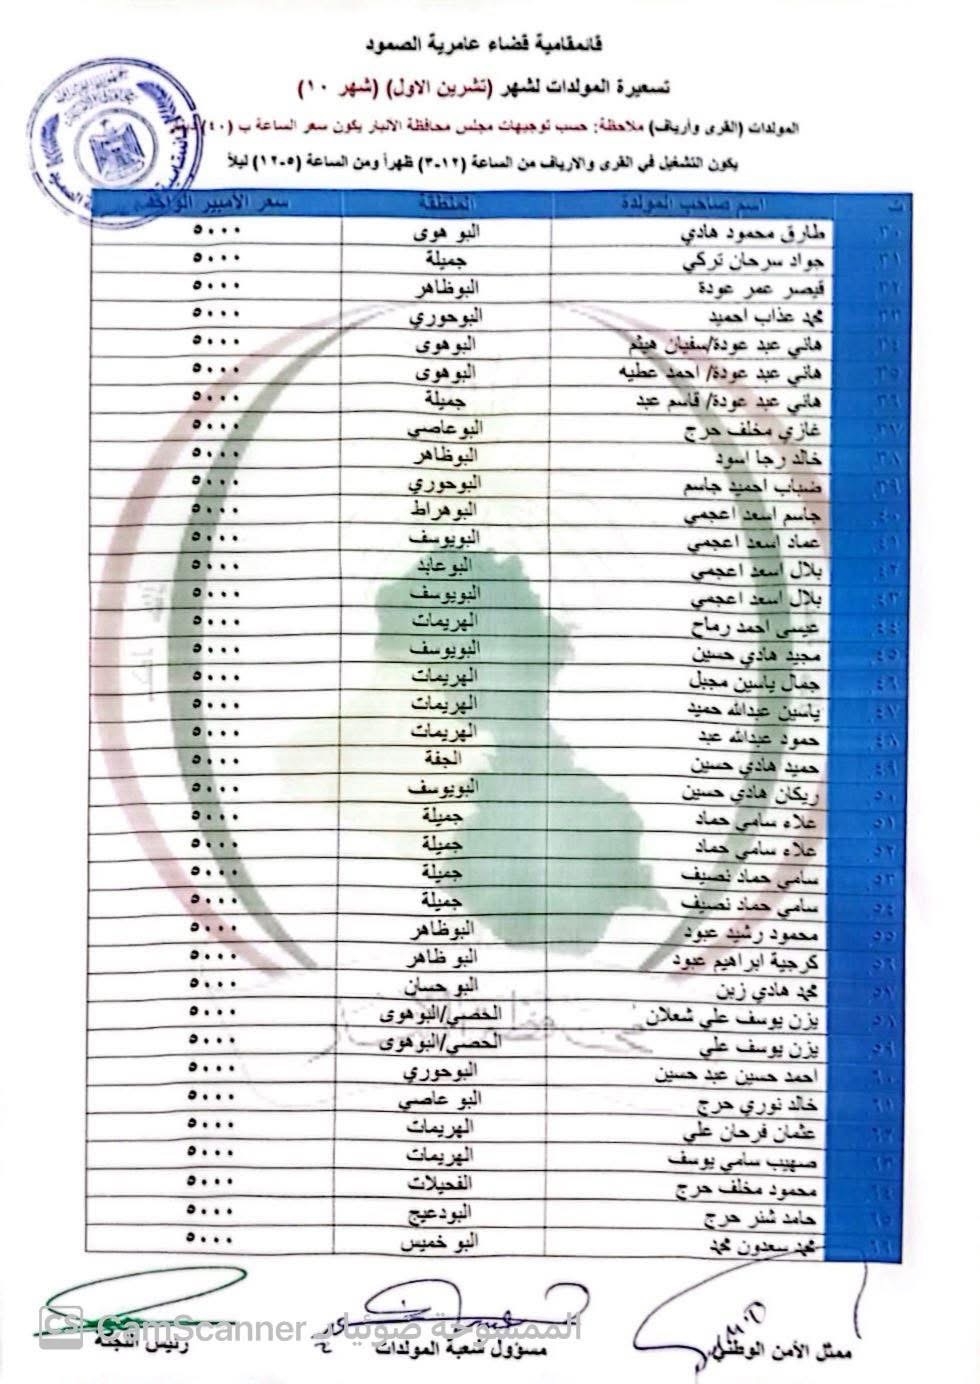 قائمقامية قضاء عامرية الصمود
تسعيرة المولدات لشهر (تشرين الاول) (شهر ١٠)
المولدات (القرى وأرياف) ملاحظة: حسب توجيهات مجلس محافظة الأنبار يكون سعر الساعة ب (٤٠)
يكون التشغيل في القرى والارياف من الساعة (١٢-٣) ظهراً ومن الساعة (٥-١٢) ليلاً
ت اسم صاحب المولدة المنطقة سعر الأمبير الواحد
٣٠. طارق محمود هادي البو هوى ٥٠٠٠
٣١. جواد سرحان تركي جميلة ٥٠٠٠
٣٢. قيصر عمر عودة البوظاهر ٥٠٠٠
٣٣. محمد عذاب احميد البوحوري ٥٠٠٠
٣٤. هاني عبد عودة/سفيان هيثم البوهوى ٥٠٠٠
٣٥. هاني عبد عودة/ احمد عطيه البوهوى ٥٠٠٠
٣٦. هاني عبد عودة/ قاسم عبد جميلة ٥٠٠٠
٣٧. غازي مخلف حرج البوعاصي ٥٠٠٠
٣٨. خالد رجا اسود البوظاهر ٥٠٠٠
٣٩. ضباب احميد جاسم البوحوري ٥٠٠٠
٤٠. جاسم اسعد اعجمي البوهراط ٥٠٠٠
٤١. عماد اسعد اعجمي البويوسف ٥٠٠٠
٤٢. بلال اسعد اعجمي البوعابد ٥٠٠٠
٤٣. بلال اسعد اعجمي البويوسف ٥٠٠٠
٤٤. عيسى احمد رماح الهريمات ٥٠٠٠
٤٥. مجيد هادي حسين البويوسف ٥٠٠٠
٤٦. جمال ياسين مجبل الهريمات ٥٠٠٠
٤٧. ياسين عبدالله حميد الهريمات ٥٠٠٠
٤٨. حمود عبدالله عبد الهريمات ٥٠٠٠
٤٩. حميد هادي حسين الجفة ٥٠٠٠
٥٠. ريكان هادي حسين البويوسف ٥٠٠٠
٥١. علاء سامي حماد جميلة ٥٠٠٠
٥٢. علاء سامي حماد جميلة ٥٠٠٠
٥٣. سامي حماد نصيف جميلة ٥٠٠٠
٥٤. سامي حماد نصيف جميلة ٥٠٠٠
٥٥. محمود رشيد عبود البوظاهر ٥٠٠٠
٥٦. كرجية ابراهيم عبود البو ظاهر ٥٠٠٠
٥٧. محمد هادي زبن البو حسان ٥٠٠٠
٥٨. يزن يوسف علي شعلان الحصي/البوهوى ٥٠٠٠
٥٩. يزن يوسف علي الحصي/البوهوى ٥٠٠٠
٦٠. احمد حسين عبد حسين البوحوري ٥٠٠٠
٦١. خالد نوري حرج البو عاصي ٥٠٠٠
٦٢. عثمان فرحان علي الهريمات ٥٠٠٠
٦٣. صهيب سامي يوسف الهريمات ٥٠٠٠
٦٤. محمود مخلف حرج الفحيلات ٥٠٠٠
٦٥. حامد شنر حرج البودعيج ٥٠٠٠
٦٦. محمد سعدون محمد البو خميس ٥٠٠٠
الممسوحة ضوئيا بـ CamScanner
CS
ممثل الأمن الوطني مسؤول شعبة المولدات رئيس اللجنة